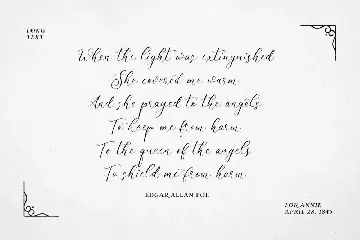 LONG
TEXT
When the light was extinguished
She covered me warm,
And she prayed to the angels
To keep me from harm.
To the queen of the angels
To shield me from harm.
EDGAR ALLAN POE
FOR ANNIE
APRIL 28, 1849